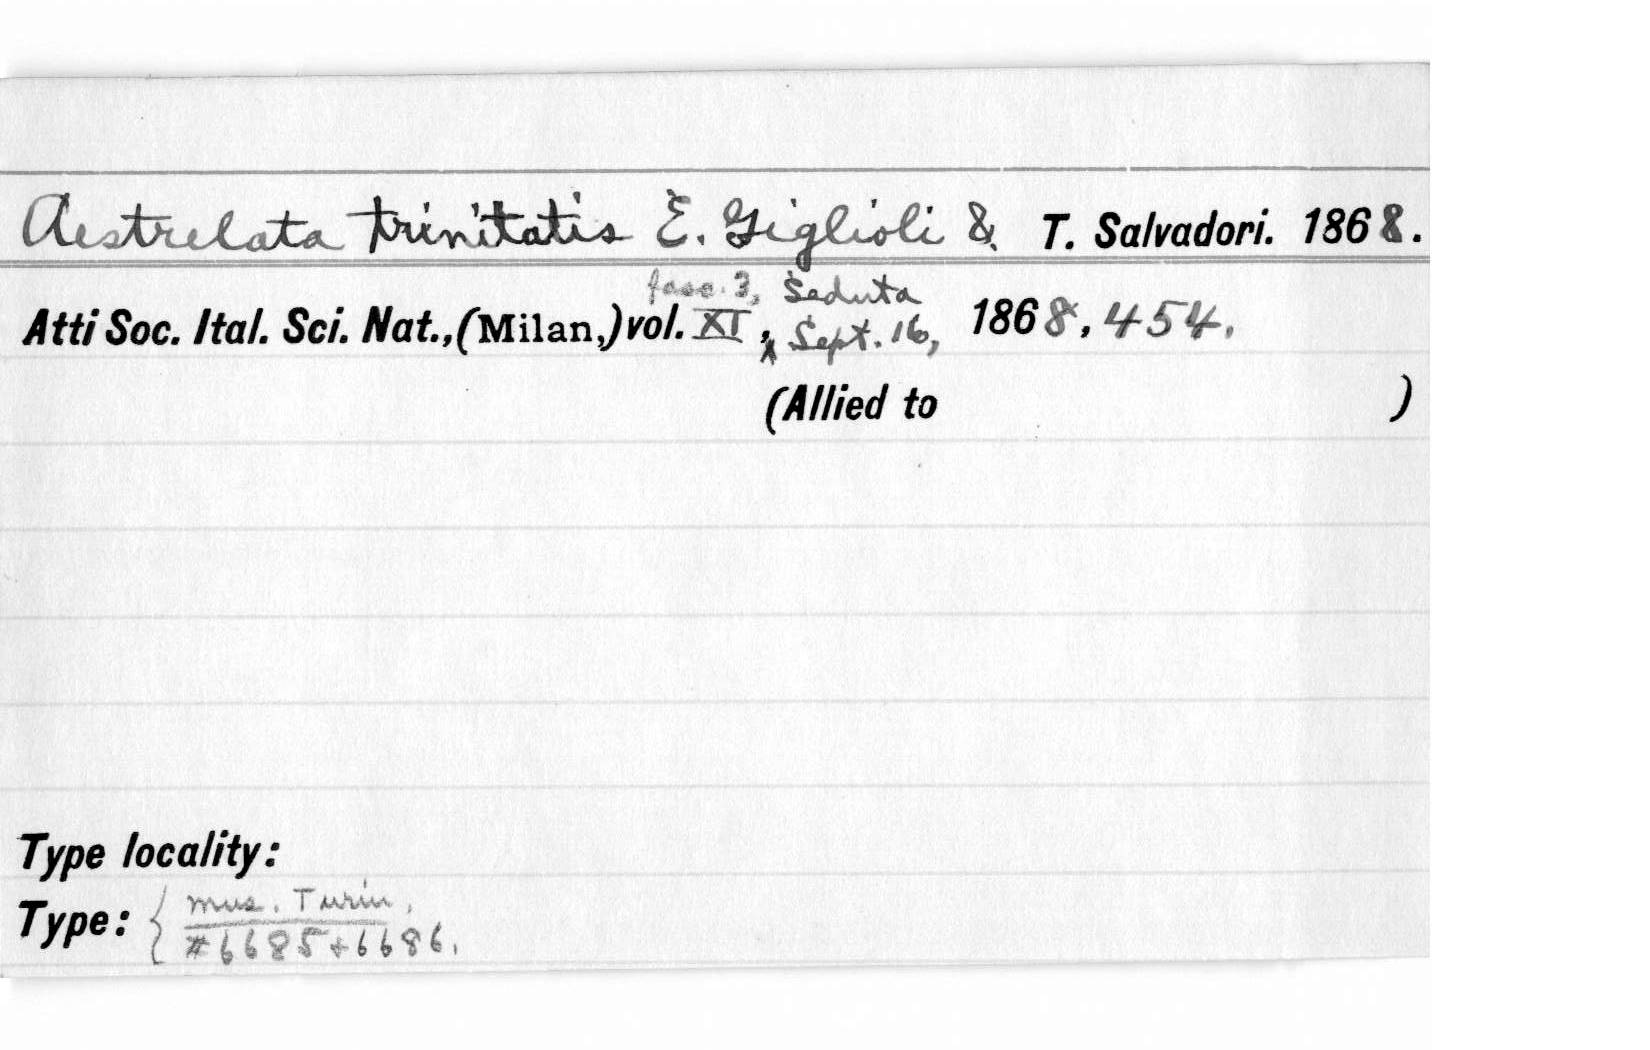 Aestrelata trinitatis E. Giglioli & T. Salvadori. 1868.
fasc. 3, Seduta
Atti Soc. Ital. Sci. Nat., (Milan,) vol. XI, Sept. 16, 1868, 454.
(Allied to )
Type locality:
Type: { Mus. Turin,
#6685+6686.